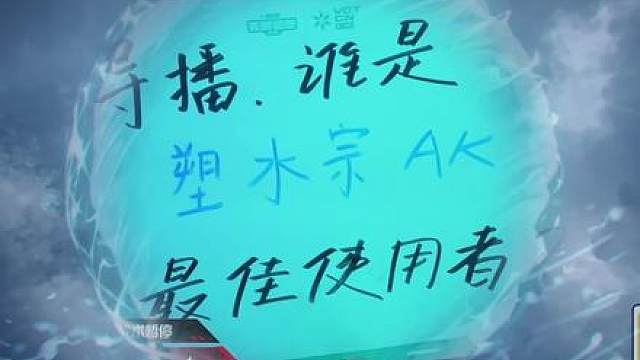 导播.谁是
塑水宗AK
最佳使用者
术暂停